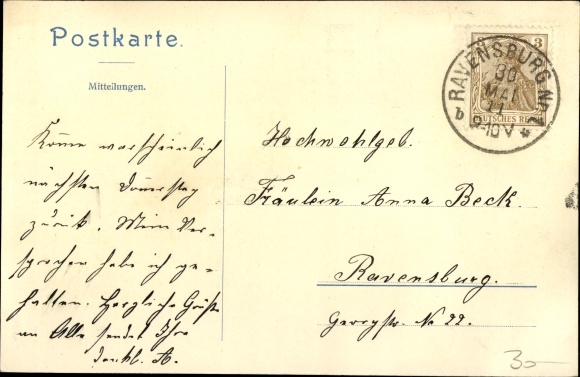 Postkarte.
Mitteilungen.
Komme warscheinlich
nächsten Donnerstag
zurük. Mein Ver-
sprechen habe ich ge-
halten. Herzliche Grüße
an Alle sendet Ihre
dankb. A.
3
DEUTSCHES REICH
RAVENSBURG Nr 2
30
MAI
11
9-10 V
b
Hochwohlgeb.
Fräulein Anna Beck.
Ravensburg.
Georgstr. No 22.
30-